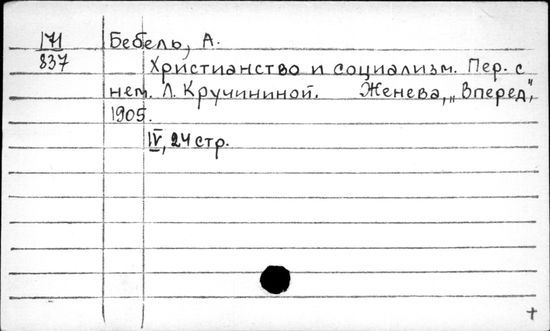 171 Бебель, А.
837 Христианство и социализм. Пер. с
нем. Л. Кручининой. Женева, „Вперед",
1905.
IV, 24 стр.